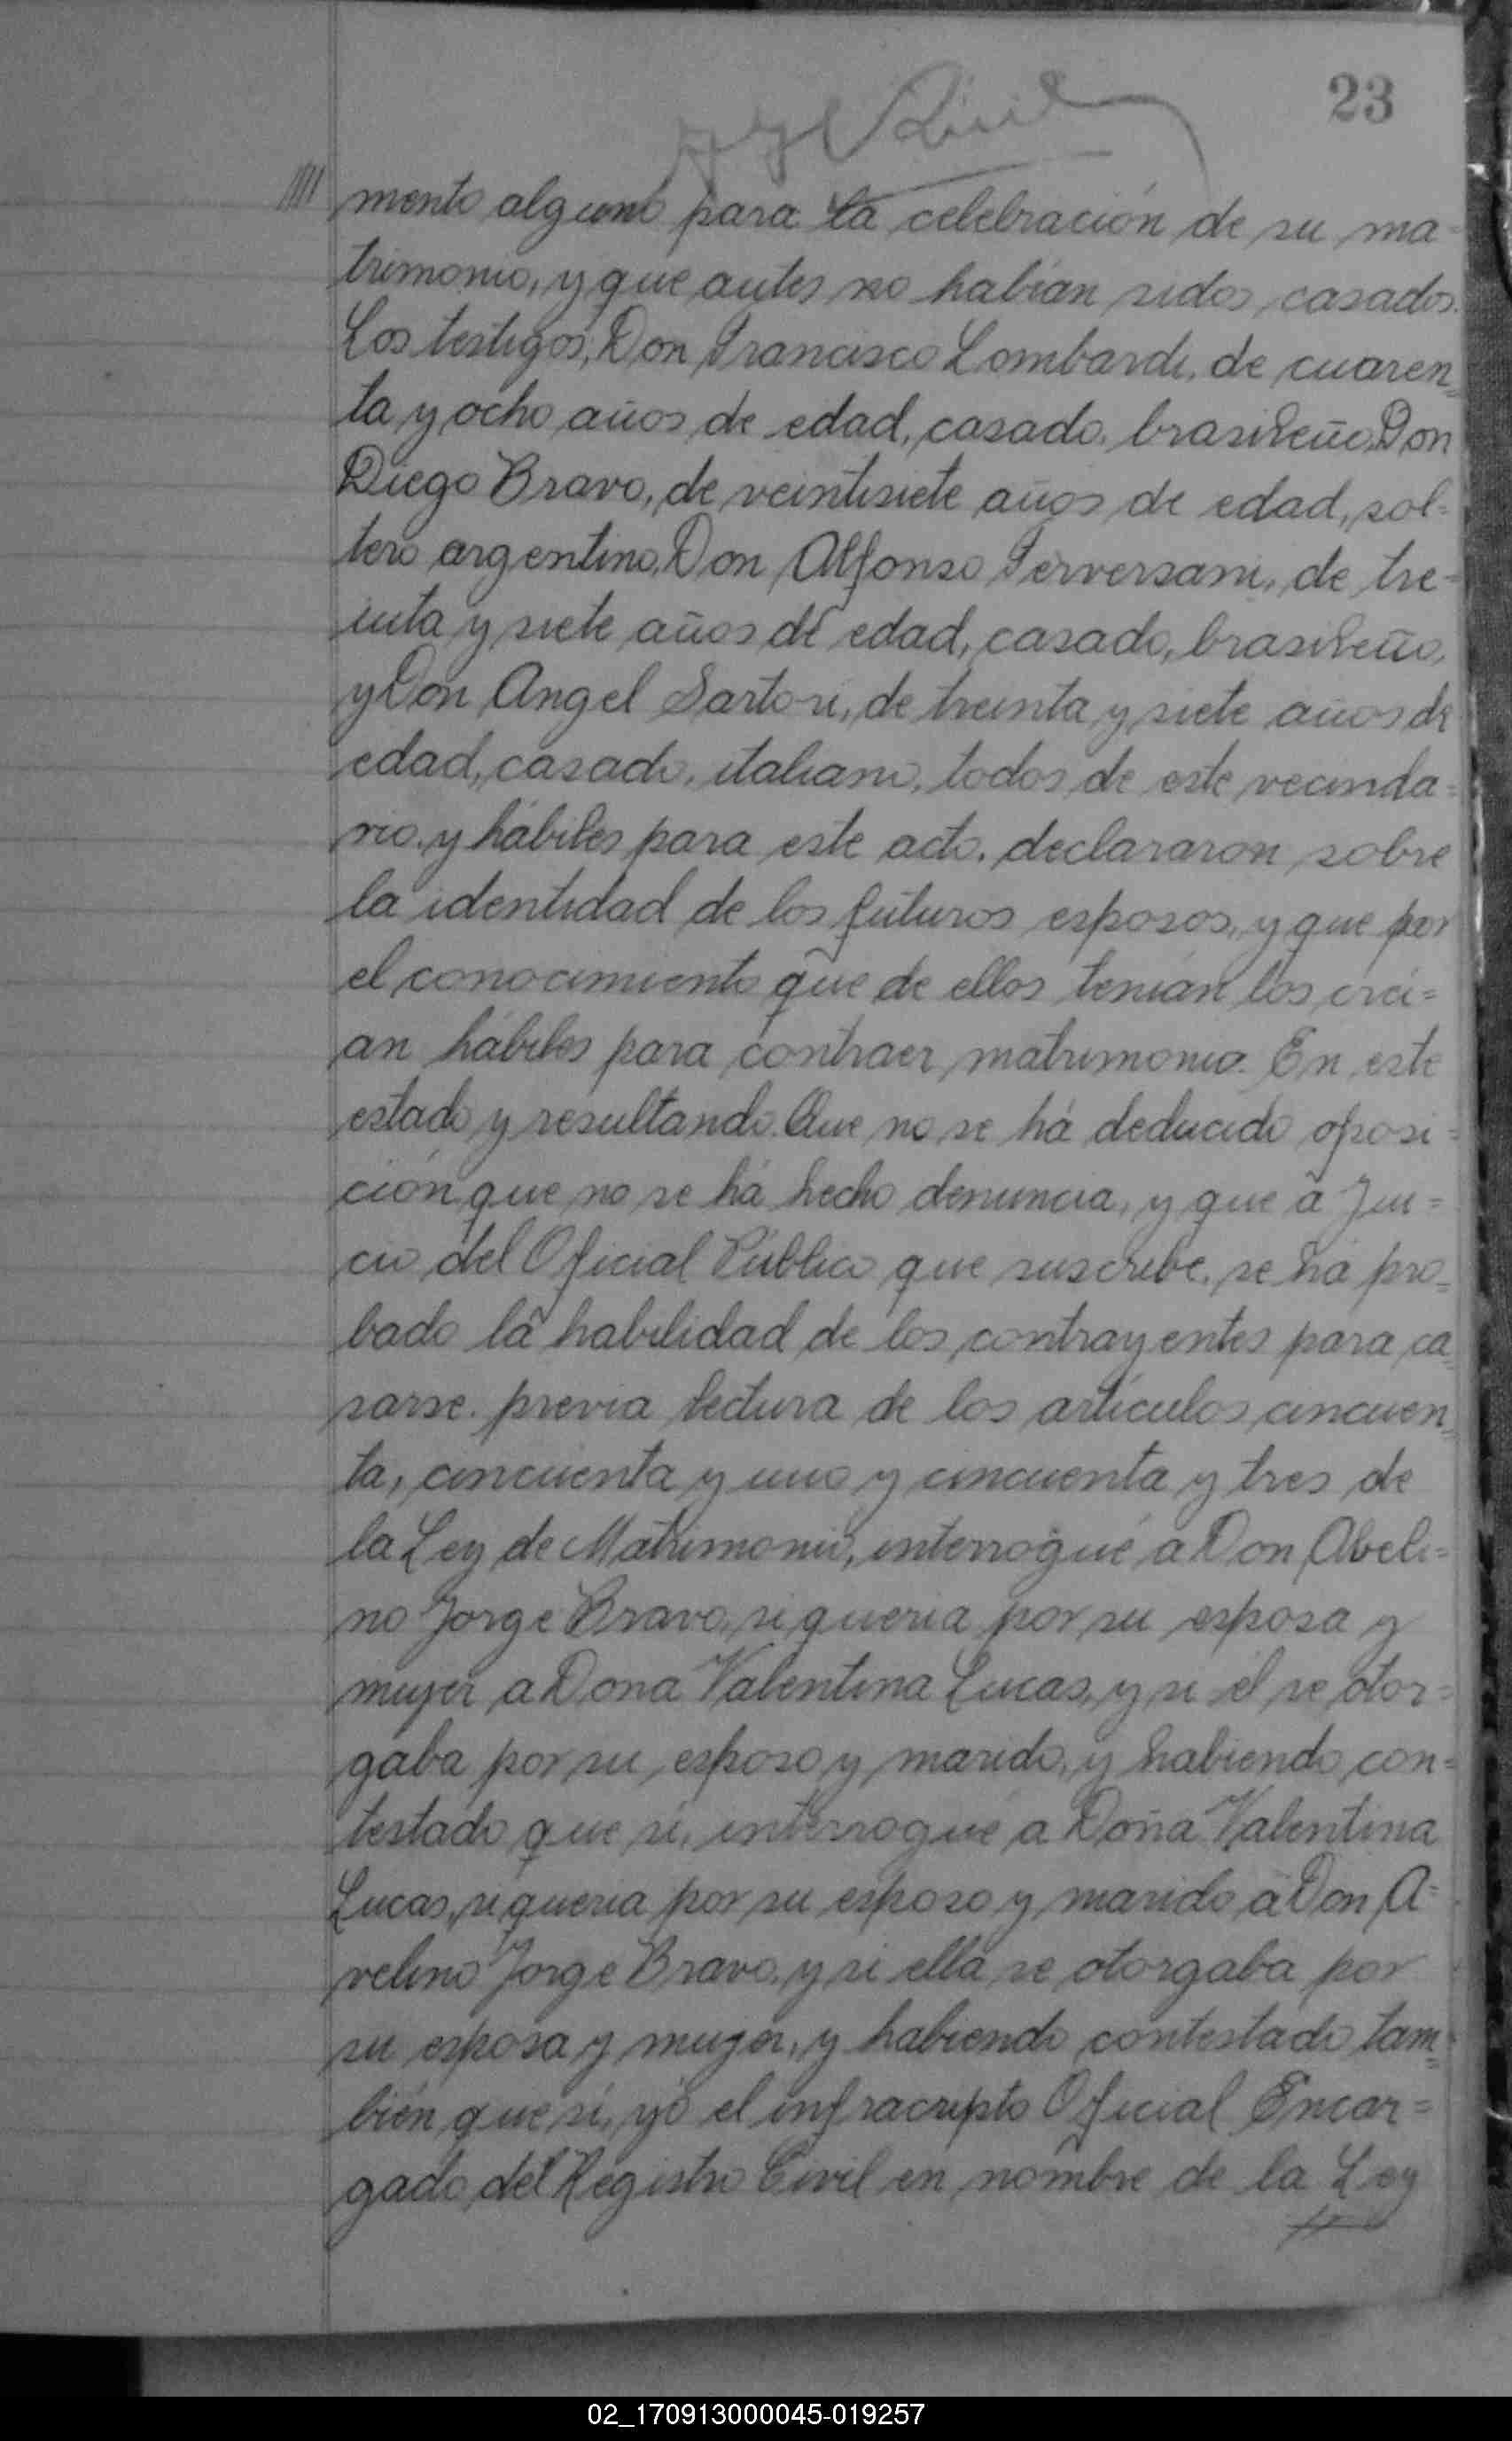 23
mento alguno para la celebración de su ma=
trimonio, y que antes no habían sidos casados.
Los testigos, Don Francisco Lombardi, de cuaren=
ta y ocho años de edad, casado, brasileño, Don
Diego Bravo, de veintisiete años de edad, sol=
tero argentino, Don Alfonso Serversani, de tre=
inta y siete años de edad, casado, brasileño,
y Don Angel Sartori, de treinta y siete años de
edad, casado, italiano, todos de este vecinda=
rio, y hábiles para este acto, declararon sobre
la identidad de los futuros esposos, y que por
el conocimiento que de ellos tenían los creí=
an hábiles para contraer matrimonio. En este
estado y resultando. Que no se há deducido oposi=
ción, que no se há hecho denuncia, y que a Jui=
cio del Oficial Público que suscribe, se há pro=
bado la habilidad de los contrayentes para ca=
sarse, previa lectura de los artículos cincuen=
ta, cincuenta y uno y cincuenta y tres de
la Ley de Matrimonio, interrogué a Don Abeli=
no Jorge Bravo, si queria por su esposa y
mujer a Dona Valentina Lucas, y si él se otor=
gaba por su esposo y marido, y habiendo con=
testado que si, interrogué a Doña Valentina
Lucas, si queria por su esposo y marido a Don A=
velino Jorge Bravo, y si ella se otorgaba por
su esposa y mujer, y habiendo contestado tam=
bién que sí, yó el infracripto Oficial Encar=
gado del Registro Civil en nombre de la Ley
02_170913000045-019257